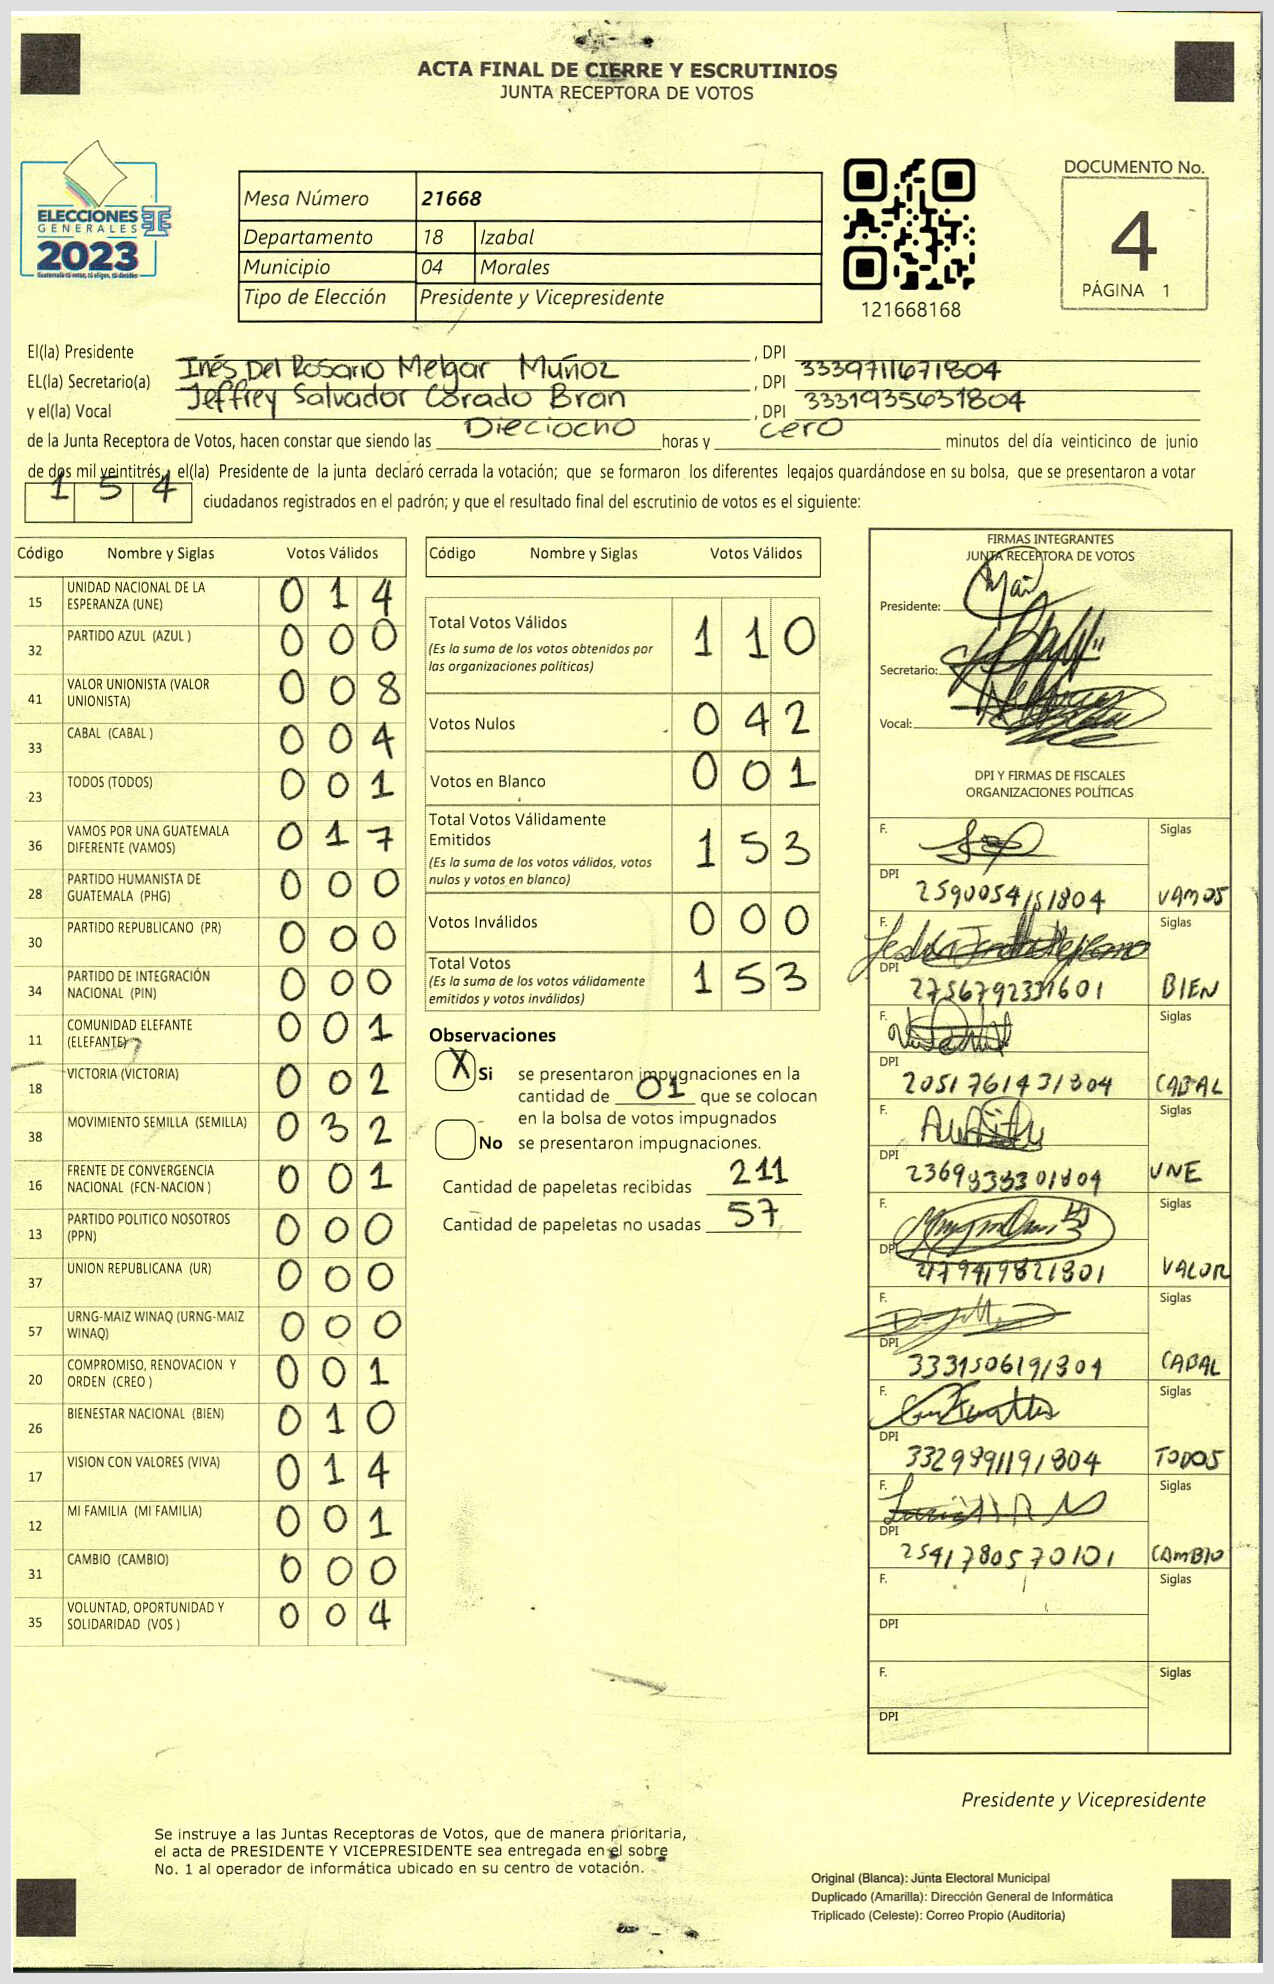 ACTA FINAL DE CIERRE Y ESCRUTINIOS
JUNTA RECEPTORA DE VOTOS
ELECCIONES
GENERALES
2023
Mesa Número 21668
Departamento 18 Izabal
Municipio 04 Morales
Tipo de Elección Presidente y Vicepresidente
121668168
DOCUMENTO No.
4
PÁGINA 1
El(la) Presidente Inés Del Rosario Melgar Muñoz , DPI 3339711671804
EL(la) Secretario(a) Jeffrey Salvador Corado Bran , DPI 3331935631804
y el(la) Vocal , DPI
de la Junta Receptora de Votos, hacen constar que siendo las Dieciocho horas y cero minutos del día veinticinco de junio
de dos mil veintitrés, el(la) Presidente de la junta declaró cerrada la votación; que se formaron los diferentes legajos quardándose en su bolsa, que se presentaron a votar
1 5 4 ciudadanos registrados en el padrón; y que el resultado final del escrutinio de votos es el siguiente:
Código Nombre y Siglas Votos Válidos
15 UNIDAD NACIONAL DE LA ESPERANZA (UNE) 0 1 4
32 PARTIDO AZUL (AZUL ) 0 0 0
41 VALOR UNIONISTA (VALOR UNIONISTA) 0 0 8
33 CABAL (CABAL ) 0 0 4
23 TODOS (TODOS) 0 0 1
36 VAMOS POR UNA GUATEMALA DIFERENTE (VAMOS) 0 1 7
28 PARTIDO HUMANISTA DE GUATEMALA (PHG) 0 0 0
30 PARTIDO REPUBLICANO (PR) 0 0 0
34 PARTIDO DE INTEGRACIÓN NACIONAL (PIN) 0 0 0
11 COMUNIDAD ELEFANTE (ELEFANTE) 0 0 1
18 VICTORIA (VICTORIA) 0 0 2
38 MOVIMIENTO SEMILLA (SEMILLA) 0 3 2
16 FRENTE DE CONVERGENCIA NACIONAL (FCN-NACION ) 0 0 1
13 PARTIDO POLITICO NOSOTROS (PPN) 0 0 0
37 UNION REPUBLICANA (UR) 0 0 0
57 URNG-MAIZ WINAQ (URNG-MAIZ WINAQ) 0 0 0
20 COMPROMISO, RENOVACION Y ORDEN (CREO ) 0 0 1
26 BIENESTAR NACIONAL (BIEN) 0 1 0
17 VISION CON VALORES (VIVA) 0 1 4
12 MI FAMILIA (MI FAMILIA) 0 0 1
31 CAMBIO (CAMBIO) 0 0 0
35 VOLUNTAD, OPORTUNIDAD Y SOLIDARIDAD (VOS ) 0 0 4
Código Nombre y Siglas Votos Válidos
Total Votos Válidos 1 1 0
(Es la suma de los votos obtenidos por
las organizaciones políticas)
Votos Nulos 0 4 2
Votos en Blanco 0 0 1
Total Votos Válidamente
Emitidos 1 5 3
(Es la suma de los votos válidos, votos
nulos y votos en blanco)
Votos Inválidos 0 0 0
Total Votos 1 5 3
(Es la suma de los votos válidamente
emitidos y votos inválidos)
Observaciones
X Si se presentaron impugnaciones en la
cantidad de 01 que se colocan
en la bolsa de votos impugnados
No se presentaron impugnaciones.
Cantidad de papeletas recibidas 211
Cantidad de papeletas no usadas 57
FIRMAS INTEGRANTES
JUNTA RECEPTORA DE VOTOS
Presidente:
Secretario:
Vocal:
DPI Y FIRMAS DE FISCALES
ORGANIZACIONES POLÍTICAS
F. Siglas
DPI 2590054151804 VAMOS
F. Siglas
DPI BIEN
F. Siglas
DPI 2051761431804 CABAL
F. Siglas
DPI UNE
F. Siglas
DPI VALOR
F. Siglas
DPI 3331506191804 CABAL
F. Siglas
DPI 3329991191804 TODOS
F. Siglas
DPI 2541780570101 CAMBIO
F. Siglas
DPI
F. Siglas
DPI
Presidente y Vicepresidente
Se instruye a las Juntas Receptoras de Votos, que de manera prioritaria,
el acta de PRESIDENTE Y VICEPRESIDENTE sea entregada en el sobre
No. 1 al operador de informática ubicado en su centro de votación.
Original (Blanca): Junta Electoral Municipal
Duplicado (Amarilla): Dirección General de Informática
Triplicado (Celeste): Correo Propio (Auditoria)